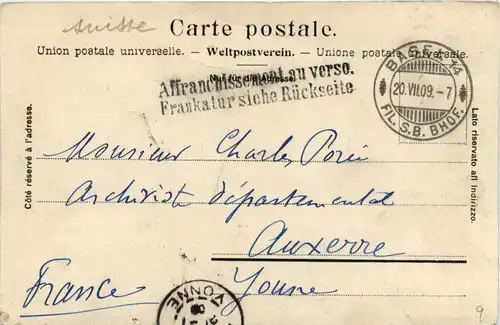 Suisse
Carte postale.
Union postale universelle. – Weltpostverein. – Unione postale universale.
Nur für die Adresse.
Affranchissement au verso.
Frankatur siehe Rückseite
BASEL 14
20.VII.09.-7
FIL. S.B. BHOF.
Côté réservé à l'adresse.
Lato riservato all' indirizzo.
Monsieur Charles Porée
Archiviste départemental
Auxerre
Yonne
France
YONNE
9